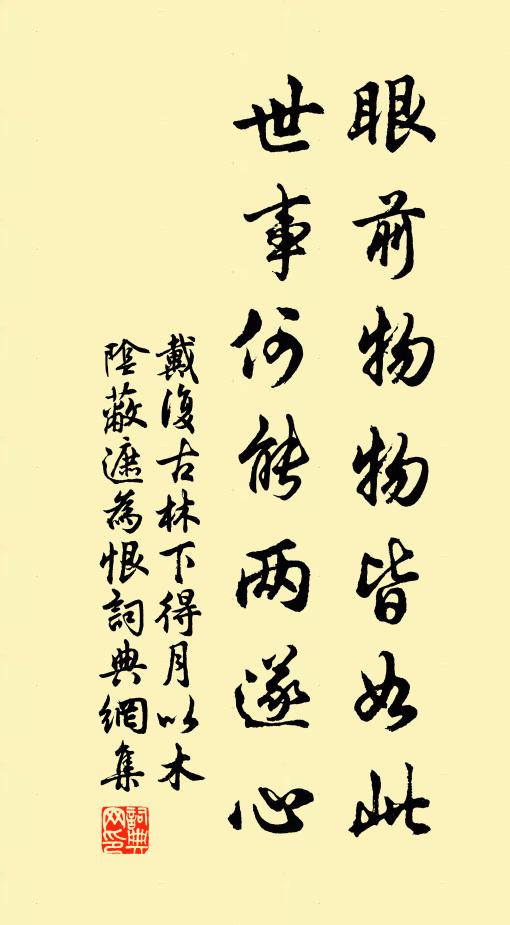 眼前物物皆如此
世事何能兩遂心
戴復古林下得月以木
陰蔽遮為恨詞典網集
詞典
网印